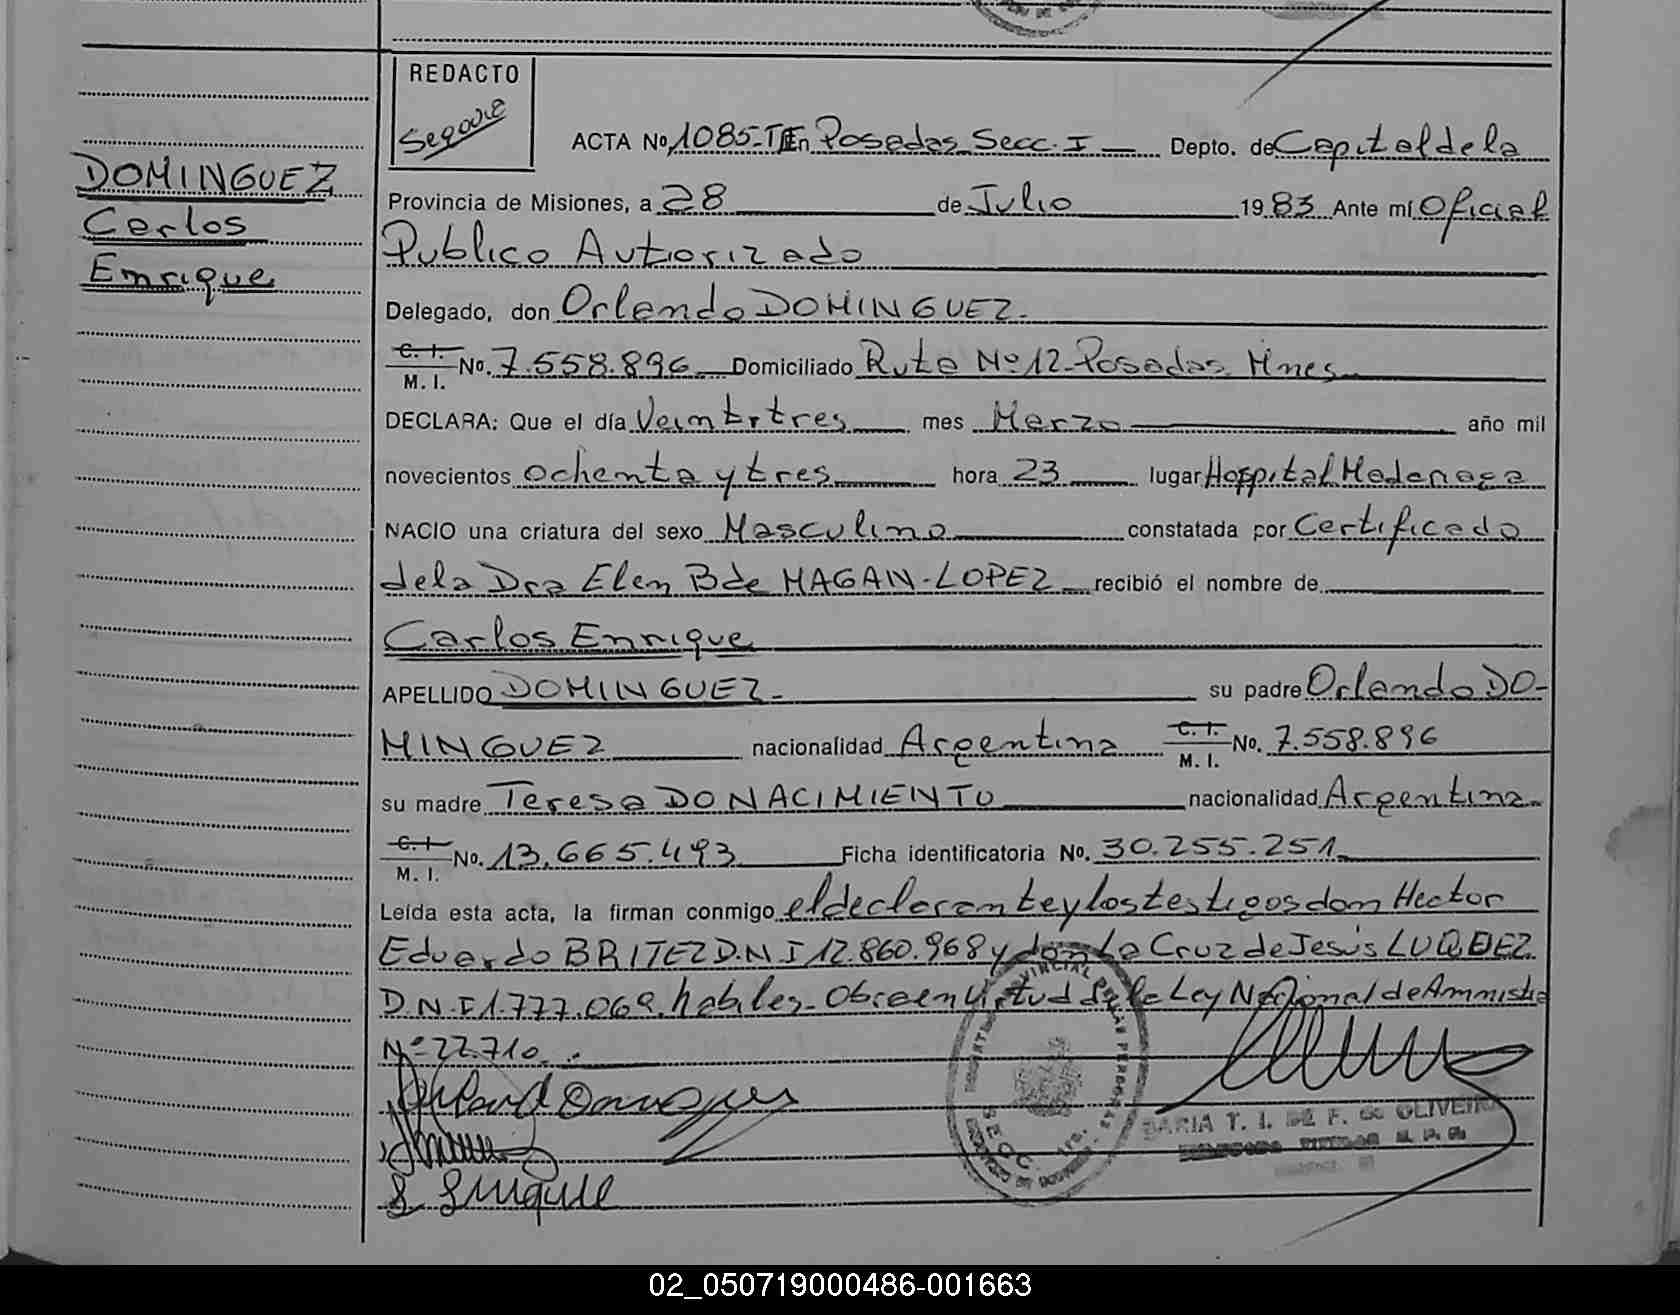 REDACTO
Segovie
DOMINGUEZ
Carlos
Enrique
ACTA No. 1085-T En Posadas Secc. I Depto. de Capital de la
Provincia de Misiones, a 28 de Julio 1983 Ante mí Oficial
Publico Autorizado
Delegado, don Orlando DOMINGUEZ.
C. I. M. I. No. 7.558.896 Domiciliado Ruta Nº 12 - Posadas. Mnes
DECLARA: Que el día Veintitres mes Marzo año mil
novecientos ochenta y tres hora 23 lugar Hospital Madariaga
NACIO una criatura del sexo Masculino constatada por Certificado
de la Dra Elen B de MAGAN-LOPEZ recibió el nombre de
Carlos Enrique
APELLIDO DOMINGUEZ su padre Orlando DO-
MINGUEZ nacionalidad Argentina C. I. M. I. No. 7.558.896
su madre Teresa DO NACIMIENTO nacionalidad Argentina
C. I. M. I. No. 13.665.493 Ficha identificatoria No. 30.255.251
Leída esta acta, la firman conmigo el declarante y los testigos don Hector
Eduardo BRITEZ D.N.I 12.860.968 y don La Cruz de Jesús LUQUEZ
D.N.I 1.777.069. habiles - Obra en Virtud de la Ley Nacional de Amnistia
Nº 22.710.
SECC. 1ra.
MARIA T. I. DE F. de OLIVEIRA
02_050719000486-001663